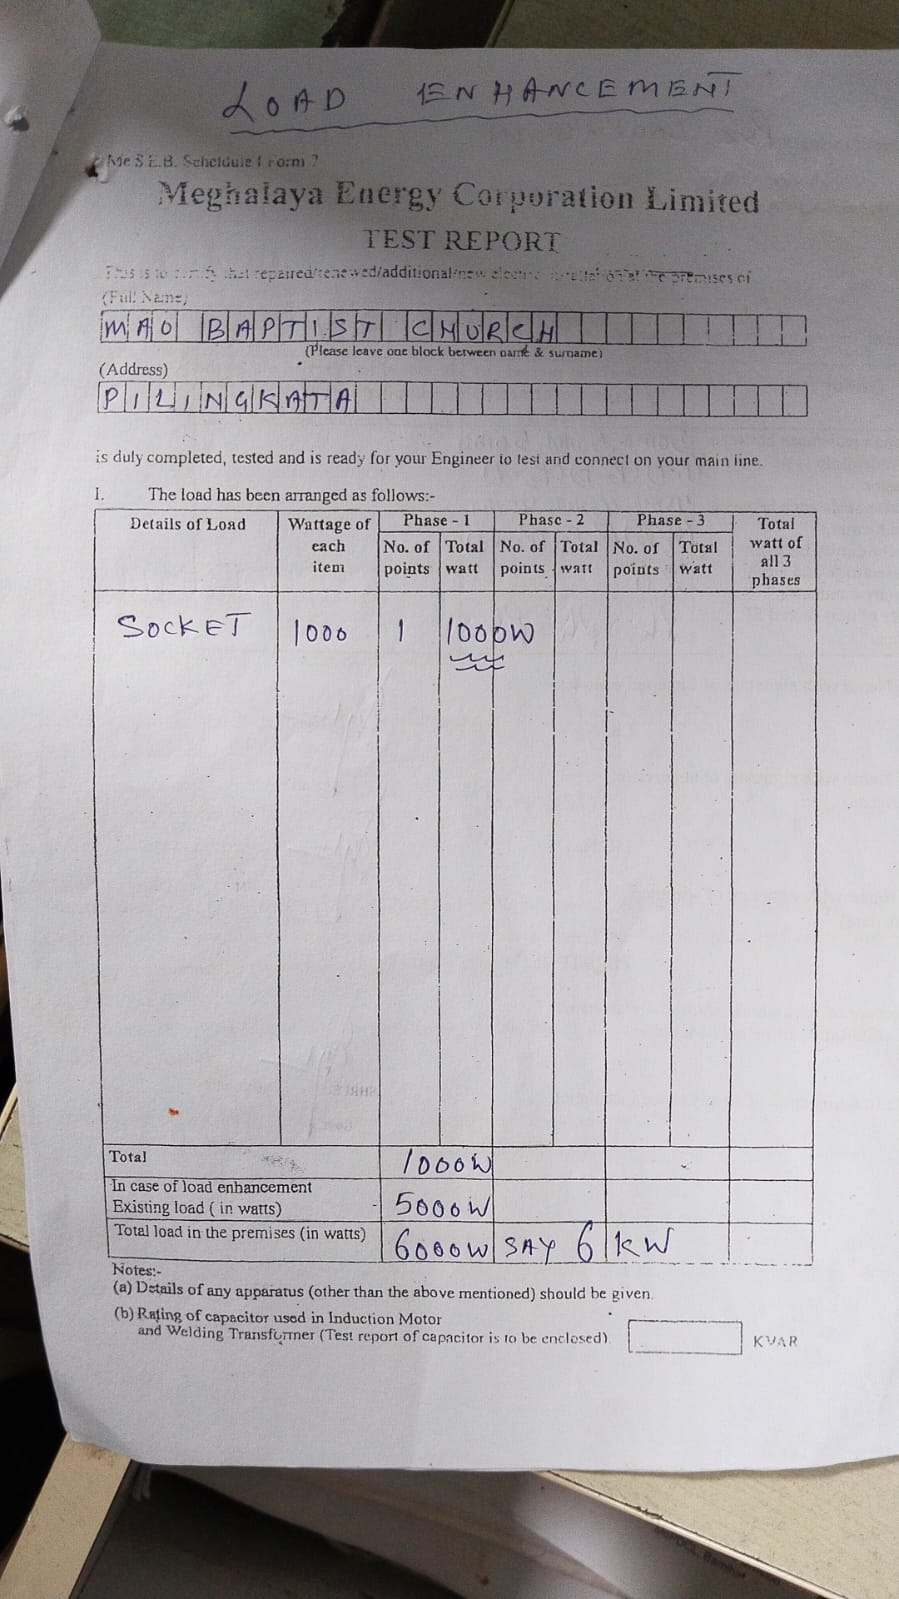 LOAD ENHANCEMENT
Me S.E.B. Scheldule I Form 7
Meghalaya Energy Corporation Limited
TEST REPORT
This is to certify that repaired/renewed/additional/new electric installation at the premises of
(Full Name)
MAO BAPTIST CHURCH
(Please leave one block between name & surname)
(Address)
PILINGKATA
is duly completed, tested and is ready for your Engineer to test and connect on your main line.
I. The load has been arranged as follows:-
Details of Load Wattage of each item Phase - 1 Phase - 2 Phase - 3 Total watt of all 3 phases
No. of points Total watt No. of points Total watt No. of points Total watt
SOCKET 1000 1 1000W
Total 1000W
In case of load enhancement
Existing load ( in watts) 5000W
Total load in the premises (in watts) 6000W SAY 6 KW
Notes:-
(a) Details of any apparatus (other than the above mentioned) should be given.
(b) Rating of capacitor used in Induction Motor
and Welding Transformer (Test report of capacitor is to be enclosed) KVAR